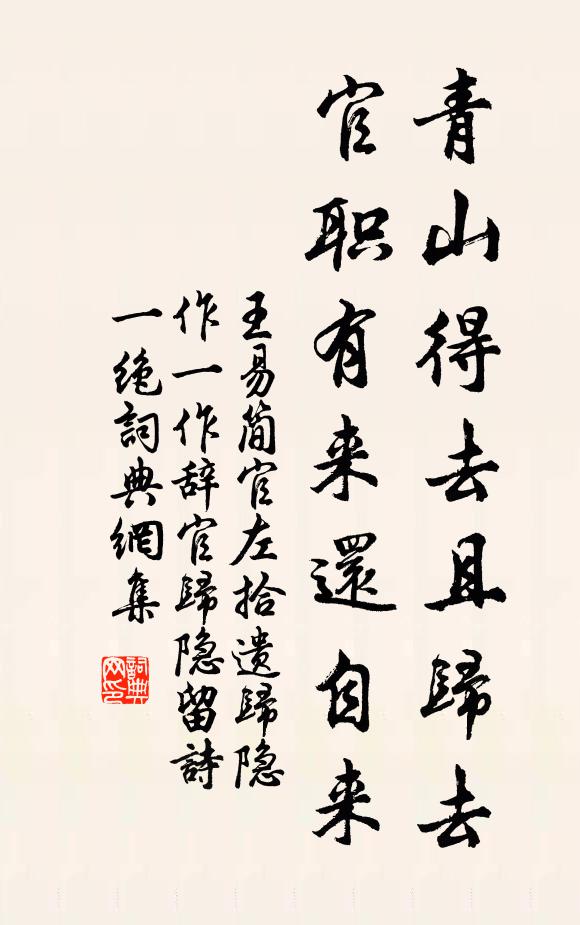 青山得去且歸去
官职有来還自来
王易简官左拾遗歸隐
作一作辞官歸隐留詩
一绝詞典網集
詞典网印